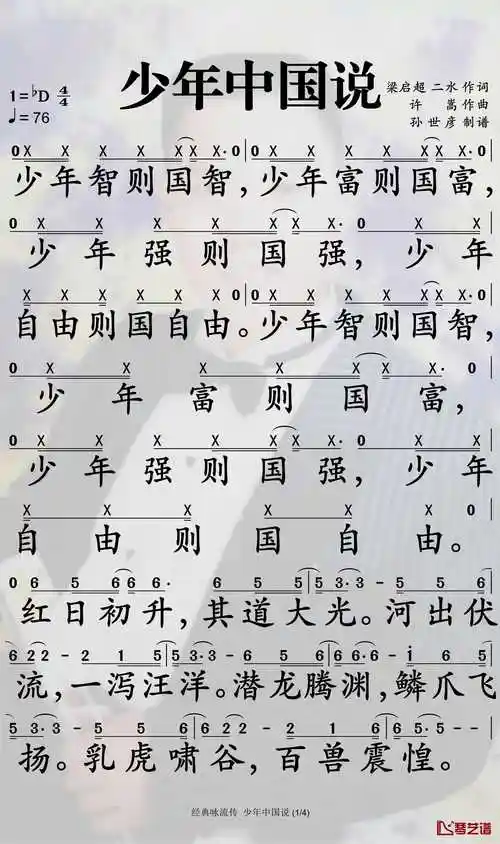 少年中国说
梁启超 二水 作词
许 嵩 作曲
孙世彦 制谱
1=♭D 4/4
♩=76
0 X X X X X X·0 0 X X X X X X·0
少年智则国智，少年富则国富，
0 X X X X X X X· 0 X X
少年强则国强，少年
X X X X X X X 0 0 X X X X X X· 0
自由则国自由。少年智则国智，
0 X X X X X X X 0
少年富则国富，
0 X X X X X X X· 0 X X
少年强则国强，少年
X X X X X X X
自由则国自由。
0 6 5 6 6 6· 6 5 5 5 3· 3· - 5 5 6
红日初升，其道大光。河出伏
6 2 2 - 2 1 5 5· - 3 5 6 6 1 6 6·6· - i 6 5
流，一泻汪洋。潜龙腾渊，鳞爪飞
5 3· 3· - 5 5 6 6 2 2 - 2 1 6 2 - - 0
扬。乳虎啸谷，百兽震惶。
经典咏流传 少年中国说 (1/4)
琴艺谱